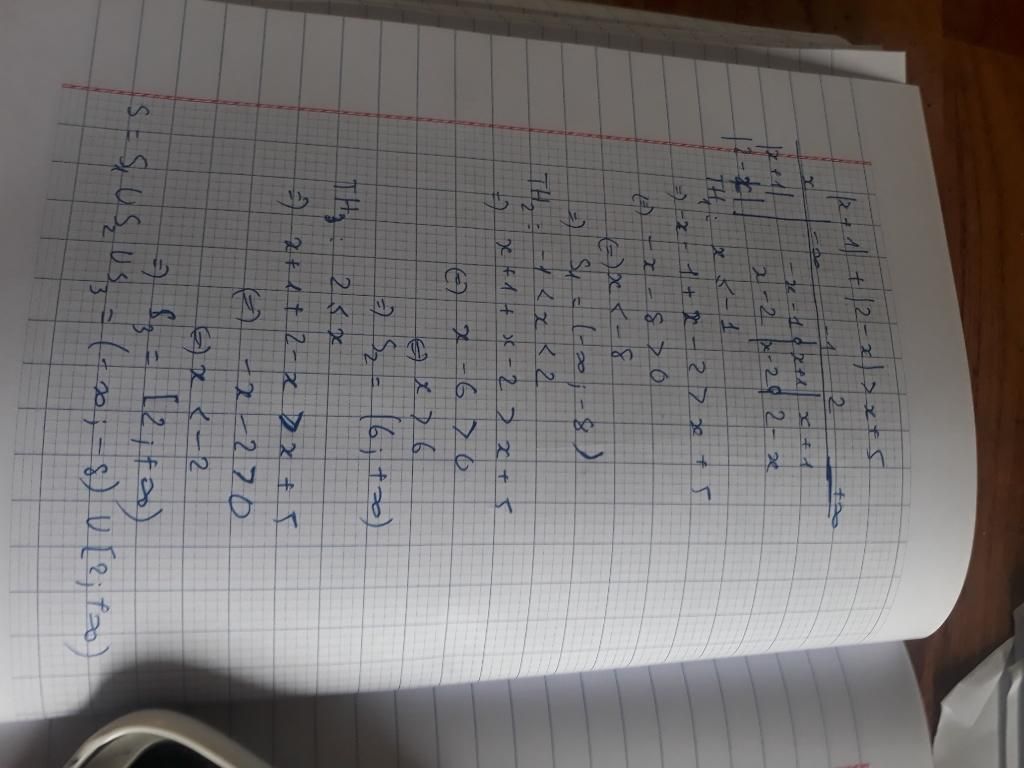 |x+1| + |2-x| > x+5
x -∞ -1 2 +∞
|x+1| -x-1 0 x+1 | x+1
|2-x| x-2 | x-2 0 2-x
TH1: x ≤ -1
=) -x-1+x-2 > x+5
(=) -x-8 > 0
(=) x < -8
=) S1 = (-∞; -8)
TH2: -1 < x < 2
=) x+1+x-2 > x+5
(=) x-6 > 0
(=) x > 6
=) S2 = (6; +∞)
TH3: 2 ≤ x
=) x+1+2-x > x+5
(=) -x-2 > 0
(=) x < -2
=) S3 = [2; +∞)
S = S1 U S2 U S3 = (-∞; -8) U [2; +∞)